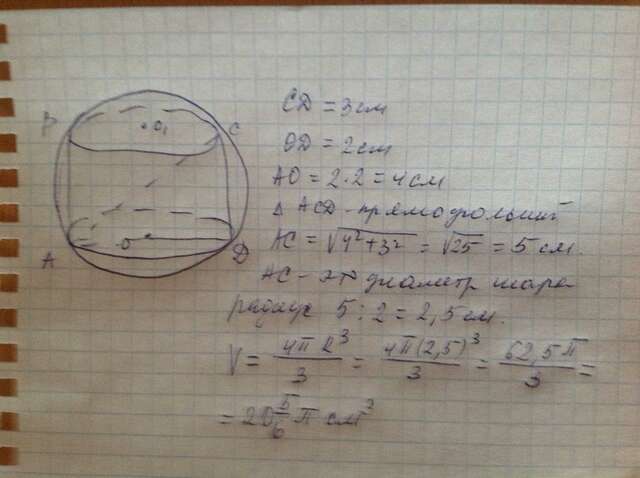 B
O₁
C
A
O
D
CD = 3 см
OD = 2 см
AO = 2·2 = 4 см
△ ACD - прямоугольный
AC = √4²+3² = √25 = 5 см.
AC - это диаметр шара
радиус 5 : 2 = 2,5 см.
V = 4πR³/3 = 4π(2,5)³/3 = 62,5π/3 =
= 20 5/6 π см³